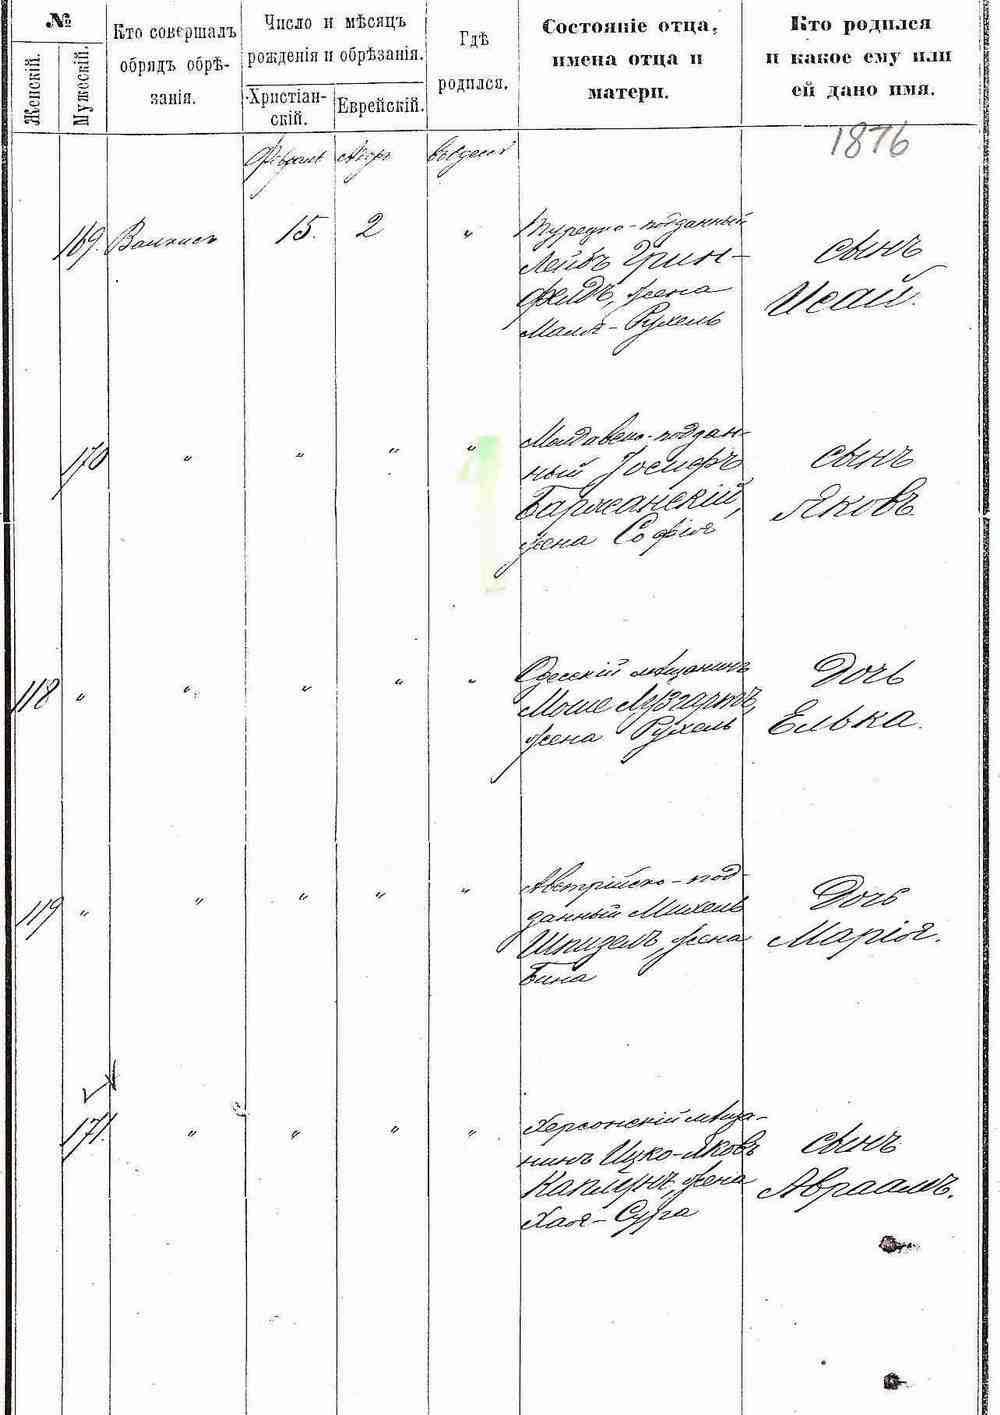 №
Женскій.
Мужескій.
Кто совершалъ
обрядъ обрѣ-
занія.
Число и мѣсяцъ
рожденія и обрѣзанія.
Христіан-
скій.
Еврейскій.
Гдѣ
родился.
Состояніе отца,
имена отца и
матери.
Кто родился
и какое ему или
ей дано имя.
1876
Февраль
169. 15. 2 „
Турецко-подданный
Лейбъ Грин-
фельдъ, жена
Рухель
сынъ
Исай.
170 „ „ „ „
Молдавско-поддан-
ный Іосифъ
Баржанскій,
жена Софія
сынъ
Яковъ
118 „ „ „ „ „
Одесскій мѣщанинъ
Моше
жена Рухель
Дочь
Елька.
119 „ „ „ „ „
Австрійско-под-
данный Михель
Шпизель, жена
Бина
Дочь
Марія.
171. „ „ „ „
Херсонскій мѣща-
нинъ Ицко-Яковъ
Каплунъ, жена
Хая-Сура
сынъ
Авраамъ.